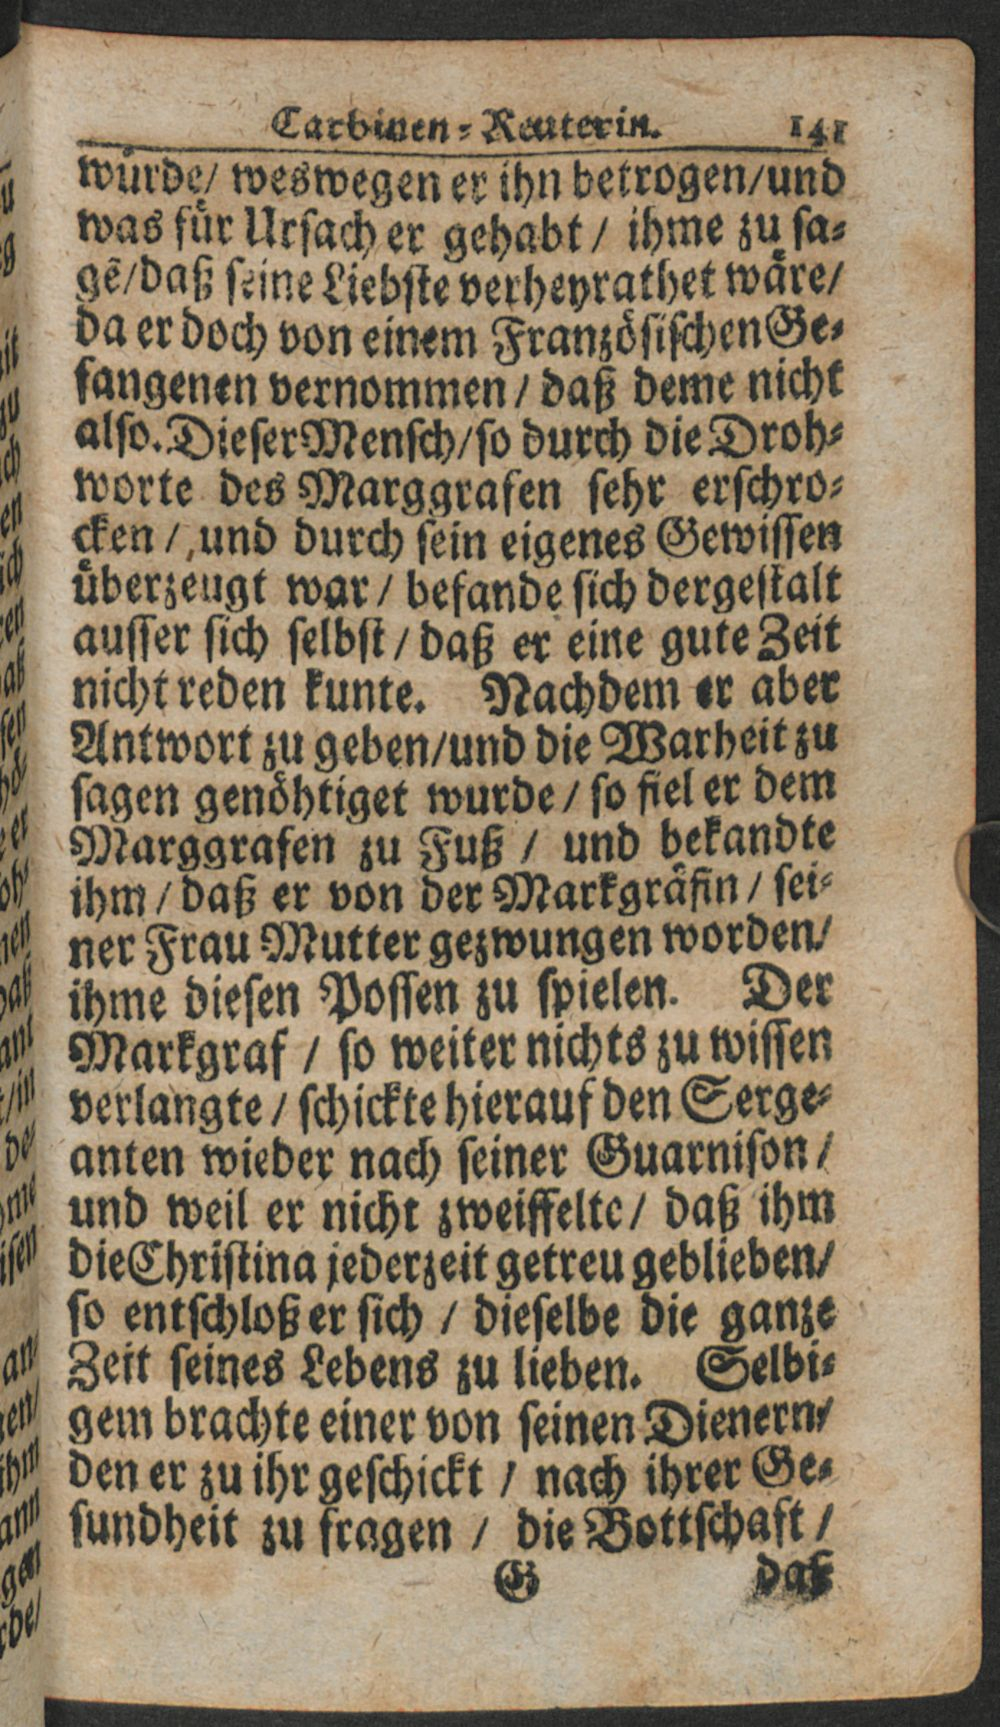 Carbinen-Reuterin. 141
würde/ weswegen er ihn betrogen/und
was für Ursach er gehabt / ihme zu sa-
gē/daß seine Liebste verheyrathet wäre/
da er doch von einem Französischen Ge-
fangenen vernommen / daß deme nicht
also. Dieser Mensch/so durch die Droh-
worte des Marggrafen sehr erschro-
cken /,und durch sein eigenes Gewissen
überzeugt war / befande sich dergestalt
ausser sich selbst / daß er eine gute Zeit
nicht reden kunte. Nachdem er aber
Antwort zu geben/und die Warheit zu
sagen genöhtiget wurde / so fiel er dem
Marggrafen zu Fuß / und bekandte
ihm / daß er von der Markgräfin / sei-
ner Frau Mutter gezwungen worden/
ihme diesen Possen zu spielen. Der
Markgraf / so weiter nichts zu wissen
verlangte / schickte hierauf den Serge-
anten wieder nach seiner Guarnison /
und weil er nicht zweiffelte / daß ihm
die Christina jederzeit getreu geblieben/
so entschloß er sich / dieselbe die ganze
Zeit seines Lebens zu lieben. Selbi-
gem brachte einer von seinen Dienern/
den er zu ihr geschickt / nach ihrer Ge-
sundheit zu fragen / die Bottschaft /
G daß